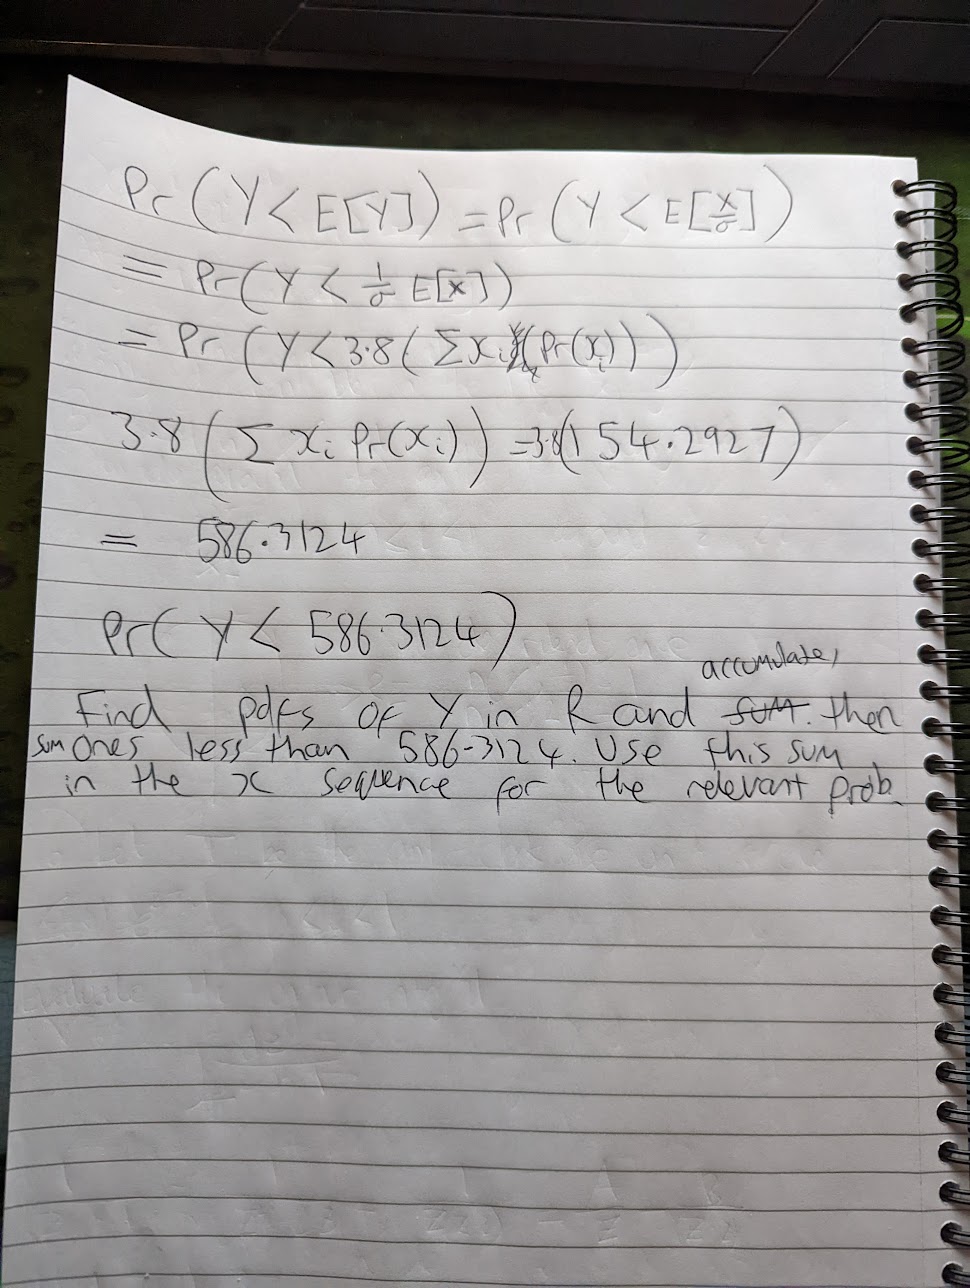 Pr(Y < E[Y]) = Pr(Y < E[X/σ])
= Pr(Y < 1/σ E[X])
= Pr(Y < 3.8(Σxi(Pr(xi)))
3.8(Σ xi Pr(xi)) = 3.8(154.2927)
= 586.3124
Pr(Y < 586.3124)
accumulate,
Find pdfs of Y in R and sum. then
sum ones less than 586.3124. Use this sum
in the x sequence for the relevant prob.